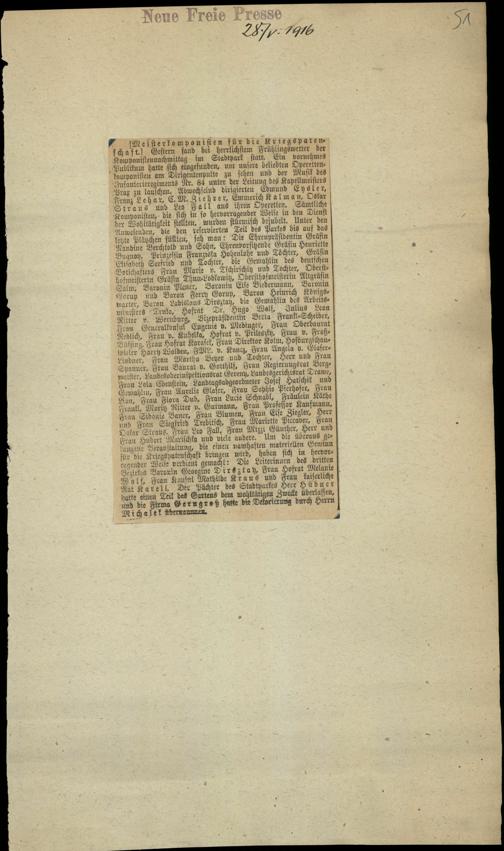 Neue Freie Presse
28/V. 1916
51
[Meisterkomponisten für die Kriegspaten-
schaft.] Gestern fand bei herrlichstem Frühlingswetter der
Komponistennachmittag im Stadtpark statt. Ein vornehmes
Publikum hatte sich eingefunden, um unsere beliebten Operetten-
komponisten am Dirigentenpulte zu sehen und der Musik des
Infanterieregiments Nr. 84 unter der Leitung des Kapellmeisters
Praz zu lauschen. Abwechselnd dirigierten Edmund Eysler,
Franz Lehar, C. M. Ziehrer, Emmerich Kalman, Oskar
Straus und Leo Fall aus ihren Operetten. Sämtliche
Komponisten, die sich in so hervorragender Weise in den Dienst
der Wohltätigkeit stellten, wurden stürmisch bejubelt. Unter den
Anwesenden, die den reservierten Teil des Parkes bis auf das
letzte Plätzchen füllten, sah man: Die Ehrenpräsidentin Gräfin
Nandine Berchtold und Sohn, Ehrenvorsitzende Gräfin Henriette
Buquoy, Prinzessin Franziska Hohenlohe und Tochter, Gräfin
Elisabeth Seefried und Tochter, die Gemahlin des deutschen
Botschafters Frau Marie v. Tschirschky und Tochter, Oberst-
hofmeisterin Gräfin Thun-Lobkowitz, Obersthofmeisterin Altgräfin
Salm, Baronin Plener, Baronin Else Biedermann, Baronin
Gorup und Baron Ferry Gorup, Baron Heinrich Königs-
warter, Baron Ladislaus Dirsztay, die Gemahlin des Arbeits-
ministers Trnka, Hofrat Dr. Hugo Wolf, Julius Leon
Ritter v. Wernburg, Vizepräsidentin Berta Frankl-Scheiber,
Frau Generalkonsul Eugenie v. Medinger, Frau Oberbaurat
Redlich, Frau v. Kubitska, Hofrat v. Prileszky, Frau v. Fraß-
Bassing, Frau Hofrat Karasek, Frau Direktor Kolm, Hofburgschau-
spieler Harry Walden, FML. v. Kanitz, Frau Angela v. Glaser-
Lindner, Frau Martha Beyer und Tochter, Herr und Frau
Spanner, Frau Baurat v. Gotthilf, Frau Regierungsrat Berg-
meister, Landesoberinspektionsrat Gerenyi, Landesgerichtsrat Drawe,
Frau Lola Ebenstein, Landtagsabgeordneter Josef Hatschek und
Gemahlin, Frau Aurelie Glaser, Frau Sophie Pserhofer, Frau
Bon, Frau Flora Dub, Frau Lucie Schnabl, Fräulein Käthe
Frankl, Moritz Ritter v. Gutmann, Frau Professor Kaufmann,
Frau Sidonie Bauer, Frau Blumen, Frau Else Ziegler, Herr
und Frau Siegfried Trebitsch, Frau Mariette Piccaver, Frau
Oskar Straus, Frau Leo Fall, Frau Mizzi Günther, Herr und
Frau Hubert Marischka und viele andere. Um die überaus ge-
lungene Veranstaltung, die einen namhaften materiellen Gewinn
für die Kriegspatenschaft bringen wird, haben sich in hervor-
ragender Weise verdient gemacht: Die Leiterinnen des dritten
Bezirkes Baronin Georgine Dirsztay, Frau Hofrat Melanie
Wolf, Frau Konsul Mathilde Kraus und Frau kaiserliche
Rat Katell. Der Pächter des Stadtparkes Herr Hübner
hatte einen Teil des Gartens dem wohltätigen Zwecke überlassen,
und die Firma Gerngroß hatte die Dekorierung durch Herrn
Michalek übernommen.